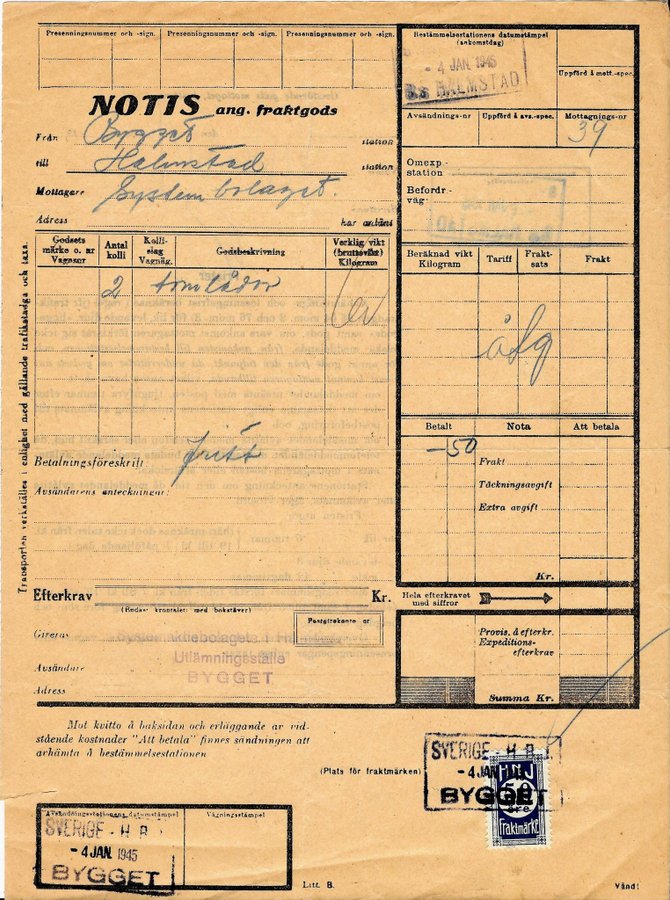 Presenningsnummer och -sign. Presenningsnummer och -sign. Presenningsnummer och -sign.
Bestämmelsestationens datumstämpel
(ankomstdag)
- 4 JAN. 1945
HALMSTAD
Uppförd å mott.-spec.
NOTIS ang. fraktgods
Avsändnings-nr Uppförd å avs.-spec. Mottagnings-nr
39
Från Bygget station
till Halmstad station
Mottagare Systembolaget.
Adress
Omexp-
station
Befordr-
väg
Godsets märke o. nr Vagnsnr
Antal kolli
Kolli-slag Vagnäg.
Godsbeskrivning
Verklig vikt (bruttovikt) Kilogram
Beräknad vikt Kilogram
Tariff
Frakt-sats
Frakt
2 tomlådor
åfg
Betalt Nota Att betala
-50
Frakt
Täckningsavgift
Extra avgift
Kr.
Betalningsföreskrift: fritt
Avsändarens anteckningar:
Transporten verkställes i enlighet med gällande trafikstadga och taxa.
Efterkrav Kr.
(Endast krontalet med bokstäver)
Hela efterkravet
med siffror
Postgirokonto nr
Gireras
aktiebolagets i
Utlämningsställe
BYGGET
Avsändare
Adress
Provis. å efterkr.
Expeditions-
efterkrav
Summa Kr.
Mot kvitto å baksidan och erläggande av vid-
stående kostnader "Att betala" finnes sändningen att
avhämta å bestämmelsestationen
(Plats för fraktmärken)
SVERIGE - H. B. J.
- 4 JAN
BYGGET
H.N.J
50
öre
Fraktmärke
Avsändningsstationens datumstämpel Vägningsstämpel
SVERIGE - H. B. J.
- 4 JAN. 1945
BYGGET
Litt. B.
Vänd!